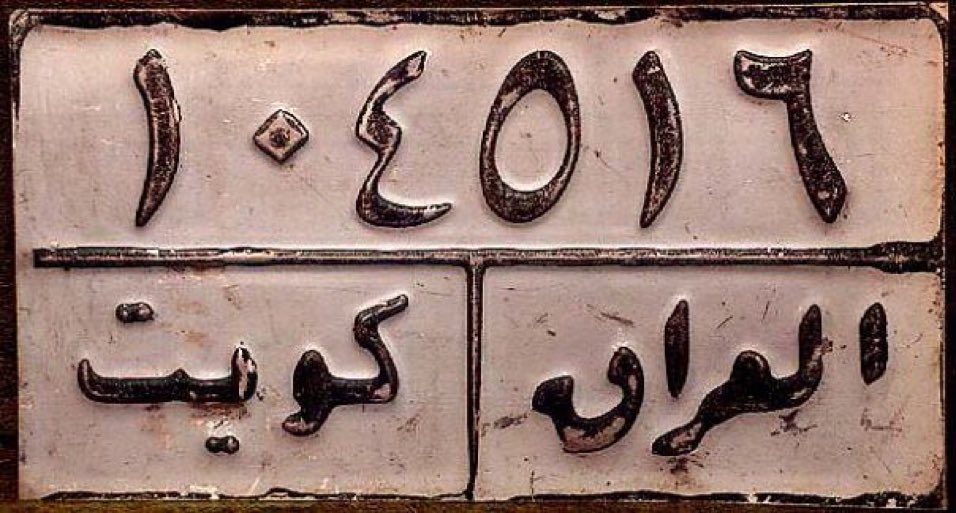 ١٠٤٥١٦
العراق كويت